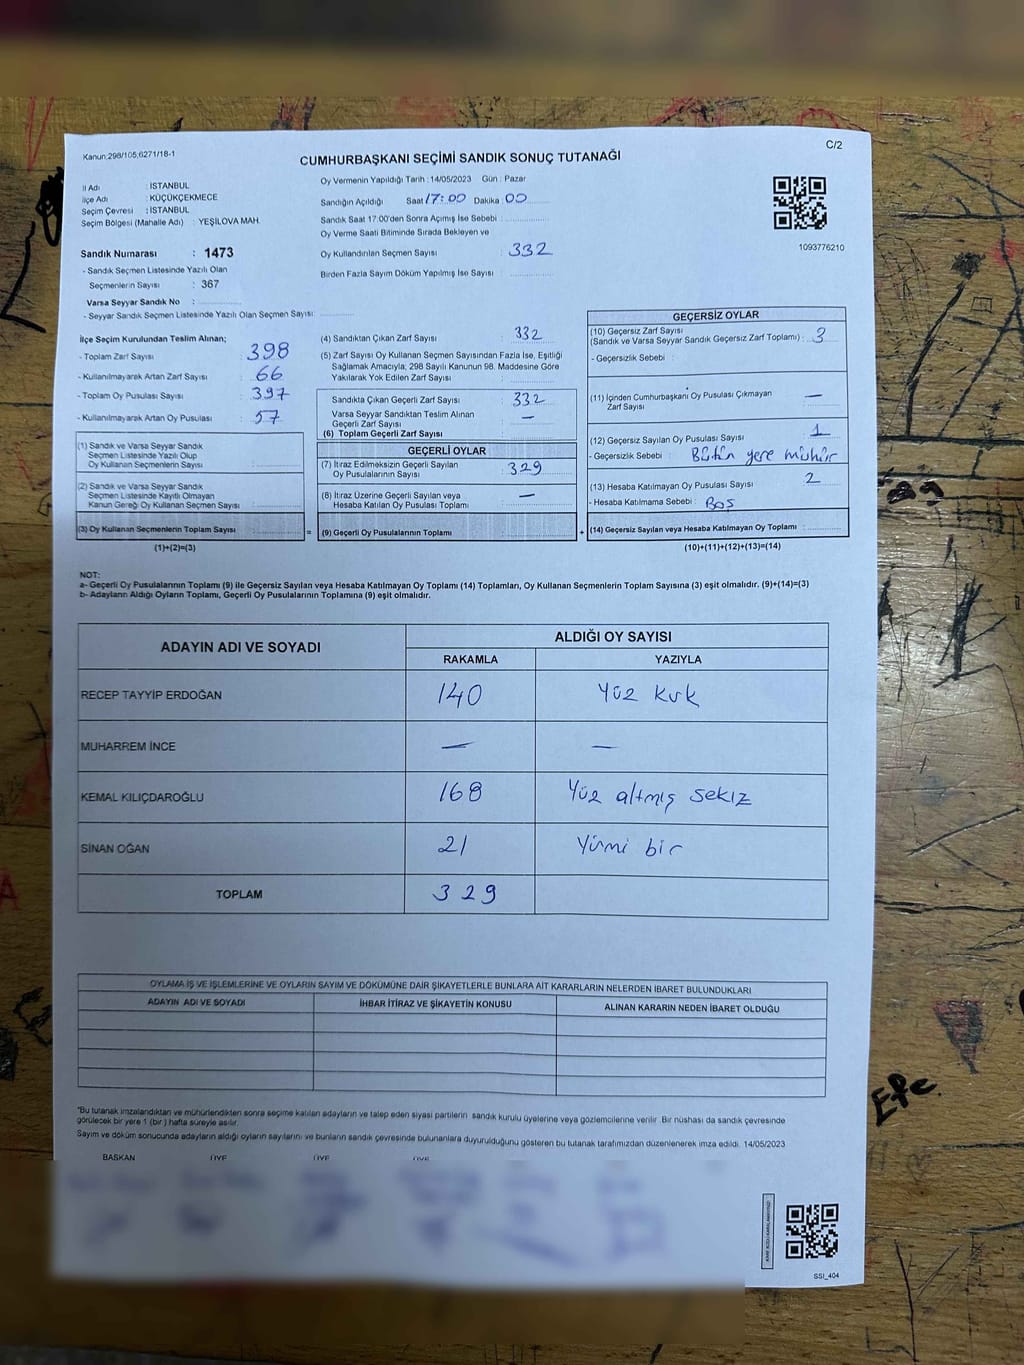 Kanun:298/105,6271/18-1
C/2
CUMHURBAŞKANI SEÇİMİ SANDIK SONUÇ TUTANAĞI
İl Adı : İSTANBUL
İlçe Adı : KÜÇÜKÇEKMECE
Seçim Çevresi : İSTANBUL
Seçim Bölgesi (Mahalle Adı) : YEŞİLOVA MAH.
Sandık Numarası : 1473
- Sandık Seçmen Listesinde Yazılı Olan
Seçmenlerin Sayısı : 367
Varsa Seyyar Sandık No :
- Seyyar Sandık Seçmen Listesinde Yazılı Olan Seçmen Sayısı:
Oy Vermenin Yapıldığı Tarih : 14/05/2023 Gün : Pazar
Sandığın Açıldığı Saat 17:00 Dakika : 00
Sandık Saat 17:00'den Sonra Açımış İse Sebebi :
Oy Verme Saati Bitiminde Sırada Bekleyen ve
Oy Kullandırılan Seçmen Sayısı : 332
Birden Fazla Sayım Döküm Yapılmış İse Sayısı :
1093776210
İlçe Seçim Kurulundan Teslim Alınan;
- Toplam Zarf Sayısı : 398
- Kullanılmayarak Artan Zarf Sayısı : 66
- Toplam Oy Pusulası Sayısı : 397
- Kullanılmayarak Artan Oy Pusulası : 57
(1) Sandık ve Varsa Seyyar Sandık
Seçmen Listesinde Yazılı Olup
Oy Kullanan Seçmenlerin Sayısı :
(2) Sandık ve Varsa Seyyar Sandık
Seçmen Listesinde Kayıtlı Olmayan
Kanun Gereği Oy Kullanan Seçmen Sayısı :
(3) Oy Kullanan Seçmenlerin Toplam Sayısı :
(1)+(2)=(3)
(4) Sandıktan Çıkan Zarf Sayısı : 332
(5) Zarf Sayısı Oy Kullanan Seçmen Sayısından Fazla İse, Eşitliği
Sağlamak Amacıyla, 298 Sayılı Kanunun 98. Maddesine Göre
Yakılarak Yok Edilen Zarf Sayısı :
Sandıkta Çıkan Geçerli Zarf Sayısı : 332
Varsa Seyyar Sandıktan Teslim Alınan
Geçerli Zarf Sayısı : —
(6) Toplam Geçerli Zarf Sayısı :
GEÇERLİ OYLAR
(7) İtiraz Edilmeksizin Geçerli Sayılan
Oy Pusulalarının Sayısı : 329
(8) İtiraz Üzerine Geçerli Sayılan veya
Hesaba Katılan Oy Pusulası Toplamı : —
= (9) Geçerli Oy Pusulalarının Toplamı :
GEÇERSİZ OYLAR
(10) Geçersiz Zarf Sayısı
(Sandık ve Varsa Seyyar Sandık Geçersiz Zarf Toplamı) : 3
- Geçersizlik Sebebi :
(11) İçinden Cumhurbaşkanı Oy Pusulası Çıkmayan
Zarf Sayısı : —
(12) Geçersiz Sayılan Oy Pusulası Sayısı : 1
- Geçersizlik Sebebi : Bütün yere mühür
(13) Hesaba Katılmayan Oy Pusulası Sayısı : 2
- Hesaba Katılmama Sebebi : Boş
+ (14) Geçersiz Sayılan veya Hesaba Katılmayan Oy Toplamı :
(10)+(11)+(12)+(13)=(14)
NOT:
a- Geçerli Oy Pusulalarının Toplamı (9) ile Geçersiz Sayılan veya Hesaba Katılmayan Oy Toplamı (14) Toplamları, Oy Kullanan Seçmenlerin Toplam Sayısına (3) eşit olmalıdır. (9)+(14)=(3)
b- Adayların Aldığı Oyların Toplamı, Geçerli Oy Pusulalarının Toplamına (9) eşit olmalıdır.
ADAYIN ADI VE SOYADI
ALDIĞI OY SAYISI
RAKAMLA YAZIYLA
RECEP TAYYİP ERDOĞAN 140 Yüz kırk
MUHARREM İNCE — —
KEMAL KILIÇDAROĞLU 168 Yüz altmış sekiz
SİNAN OĞAN 21 Yirmi bir
TOPLAM 329
OYLAMA İŞ VE İŞLEMLERİNE VE OYLARIN SAYIM VE DÖKÜMÜNE DAİR ŞİKAYETLERLE BUNLARA AİT KARARLARIN NELERDEN İBARET BULUNDUKLARI
ADAYIN ADI VE SOYADI İHBAR İTİRAZ VE ŞİKAYETİN KONUSU ALINAN KARARIN NEDEN İBARET OLDUĞU
"Bu tutanak imzalandıktan ve mühürlendikten sonra seçime katılan adayların ve talep eden siyasi partilerin sandık kurulu üyelerine veya gözlemcilerine verilir. Bir nüshası da sandık çevresinde
görülecek bir yere 1 (bir) hafta süreyle asılır.
Sayım ve döküm sonucunda adayların aldığı oyların sayılarını ve bunların sandık çevresinde bulunanlara duyurulduğunu gösteren bu tutanak tarafımızdan düzenlenerek imza edildi. 14/05/2023
BAŞKAN ÜYE ÜYE ÜYE
SSI_404
Efe